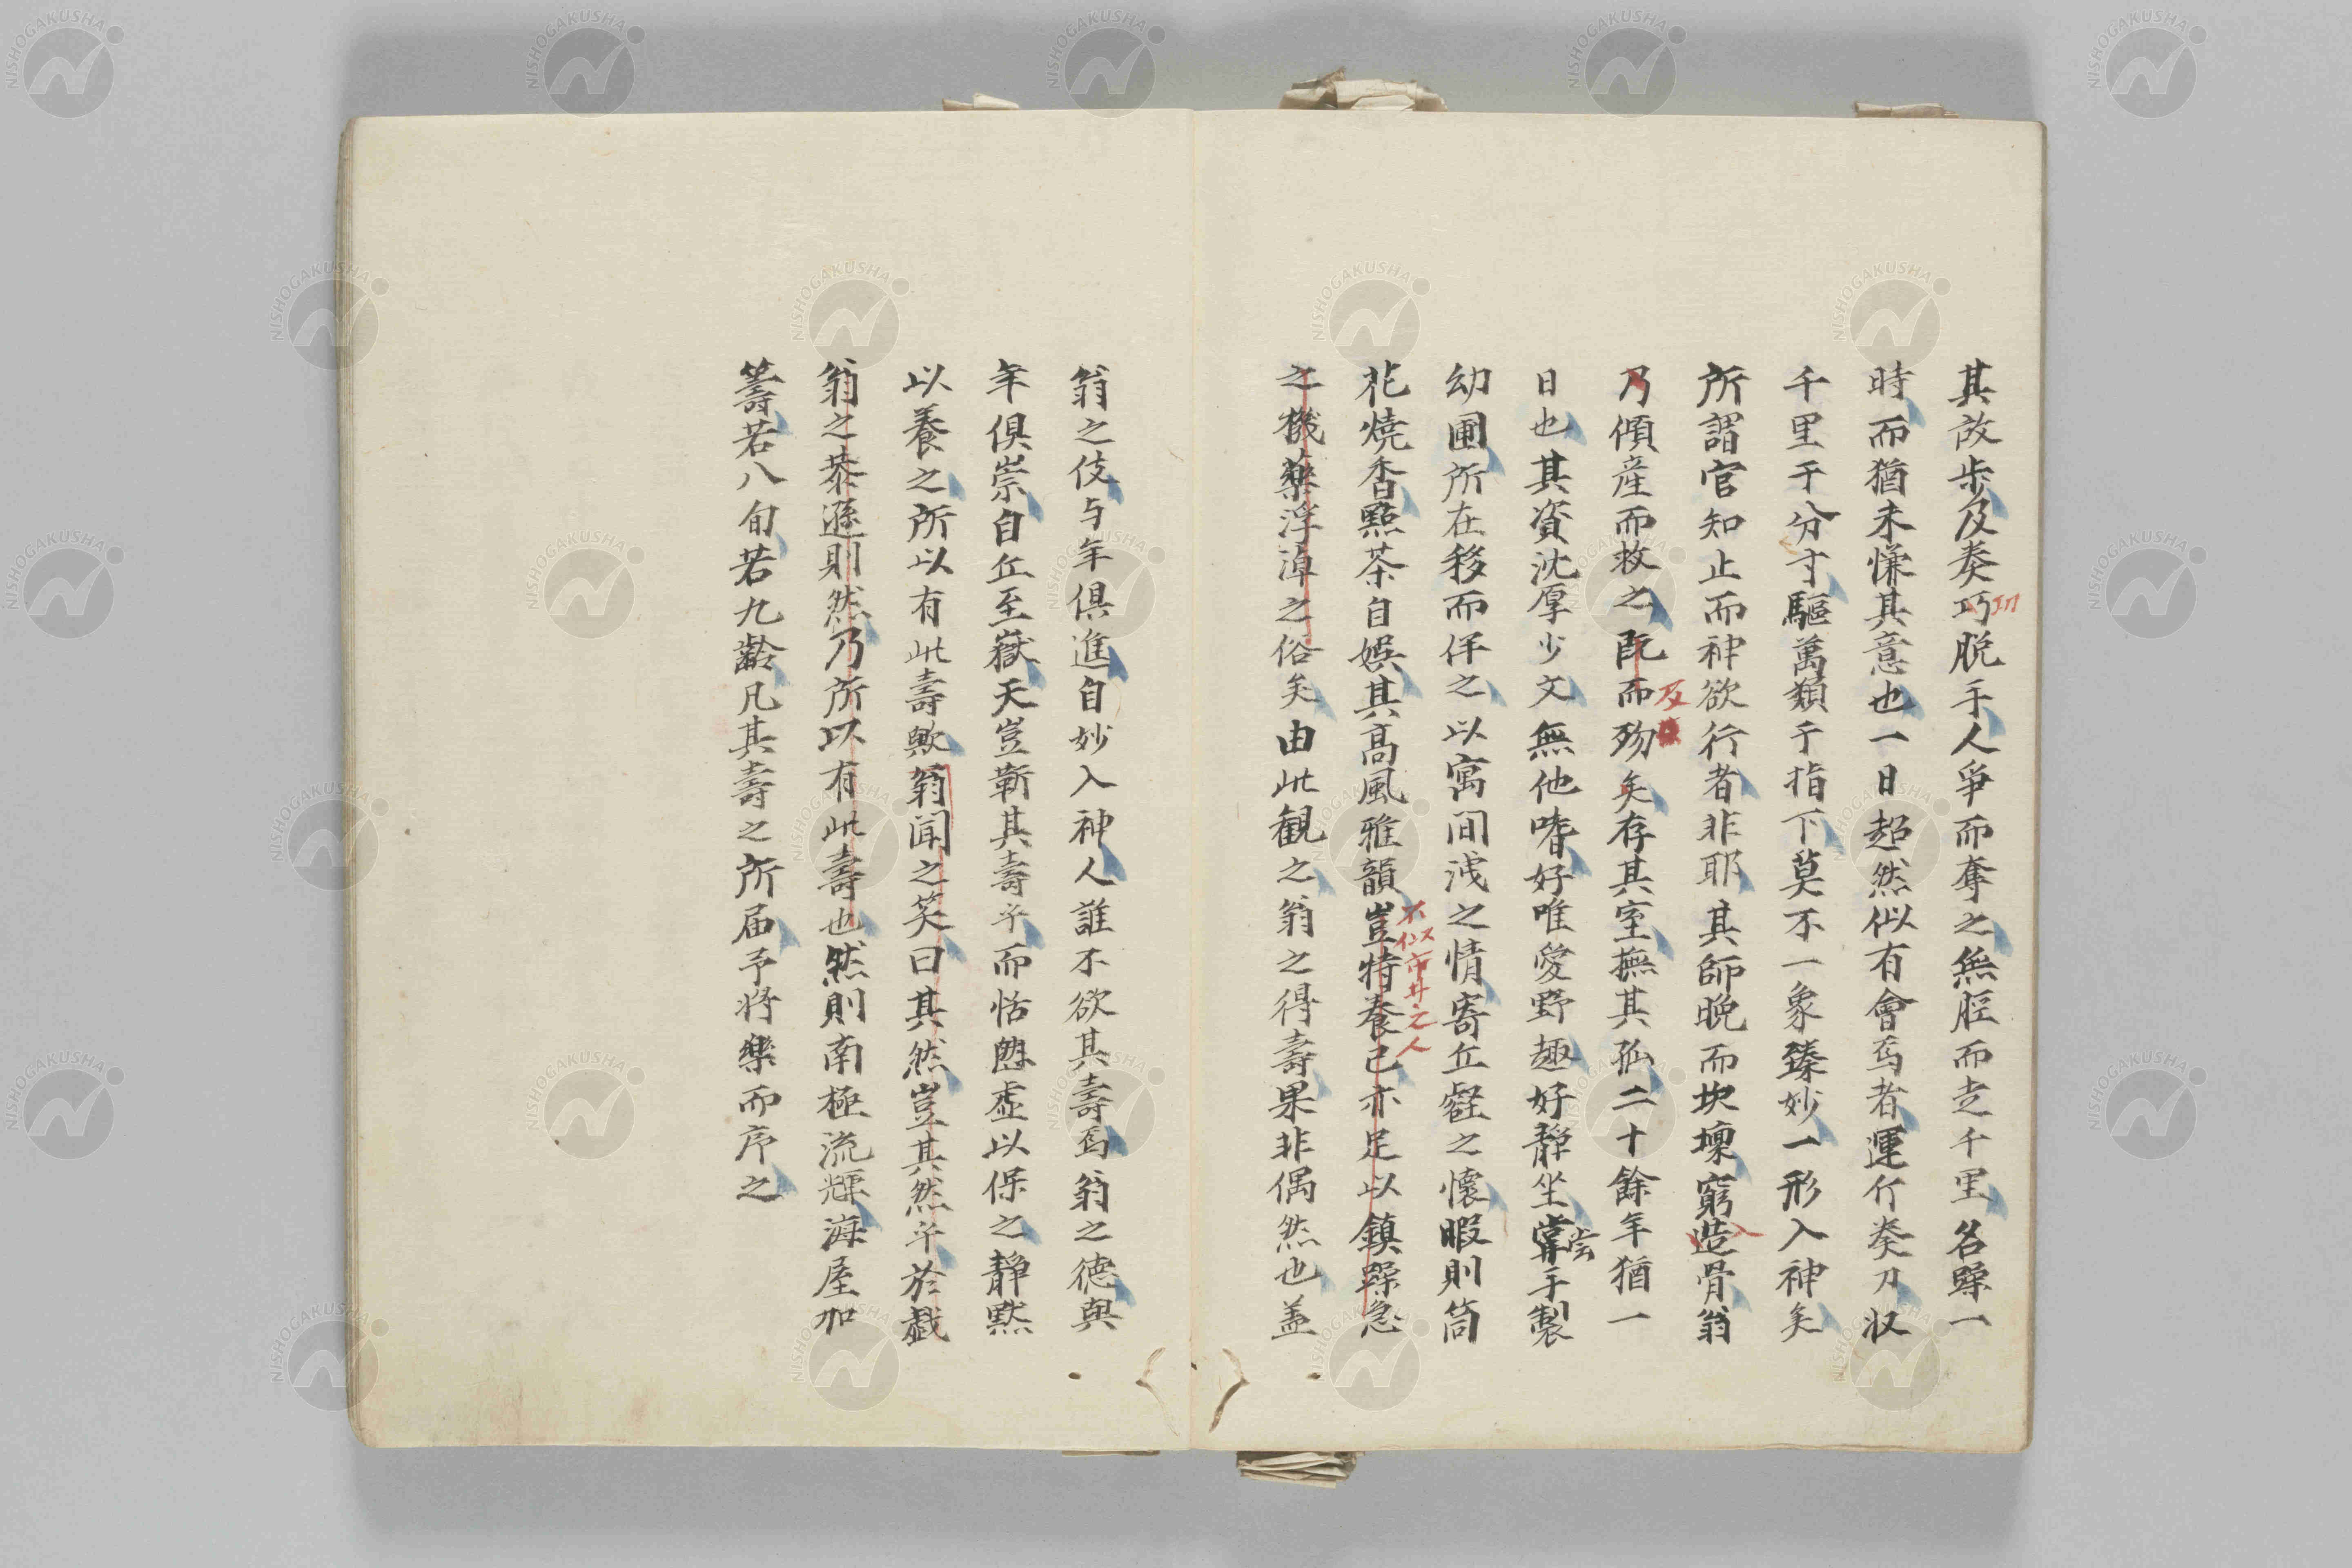 其故歩及奏巧脱手人爭而奪之無脛而走千里名譟一
功
時而猶未慊其意也一日超然似有會焉者運斤奏刀収
千里于分寸驅萬類于指下莫不一象臻妙一形入神矣
所謂官知止而神欲行者非耶其師晩而坎壈窮造骨翁
入
乃傾産而救之既而歿矣存其室撫其孤二十餘年猶一
及
日也其資沈厚少文無他嗜好唯愛野趣好靜坐甞手製
嘗
幼圃所在移而伴之以寓間浅之情寄丘壑之懷暇則筒
花焼香點茶自娯其髙風雅韻豈特養已亦足以鎮躁急
不似市井之人
之機藥浮淖之俗矣由此観之翁之得壽果非偶然也盖
翁之伎与年倶進自妙入神人誰不欲其壽焉翁之德與
年倶崇自丘至嶽天豈靳其壽乎而恬愚虚以保之靜黙
以養之所以有此壽歟翁聞之笑曰其然豈其然乎於戯
翁之恭遜則然乃所以有此壽也然則南極流輝海屋加
籌若八旬若九齡凡其壽之所届予将樂而序之
NISHOGAKUSHA